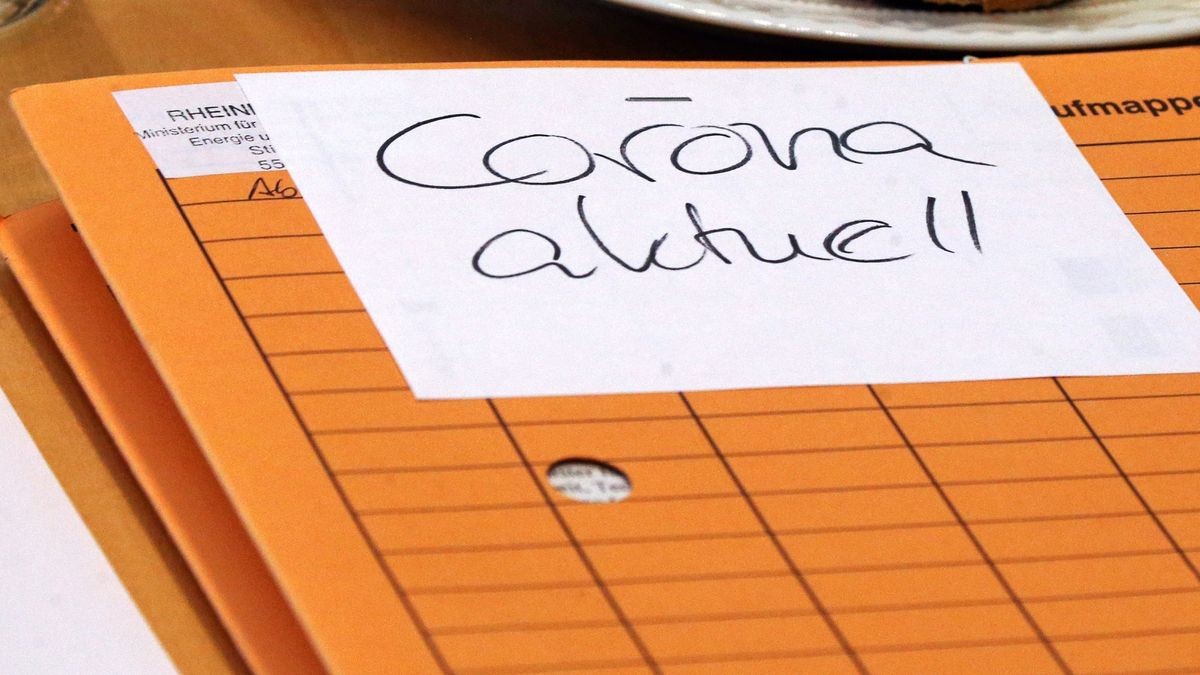 RHEINL
Ministerium für
Energie u
Sti
55
Ab
ufmappe
Corona
aktuell